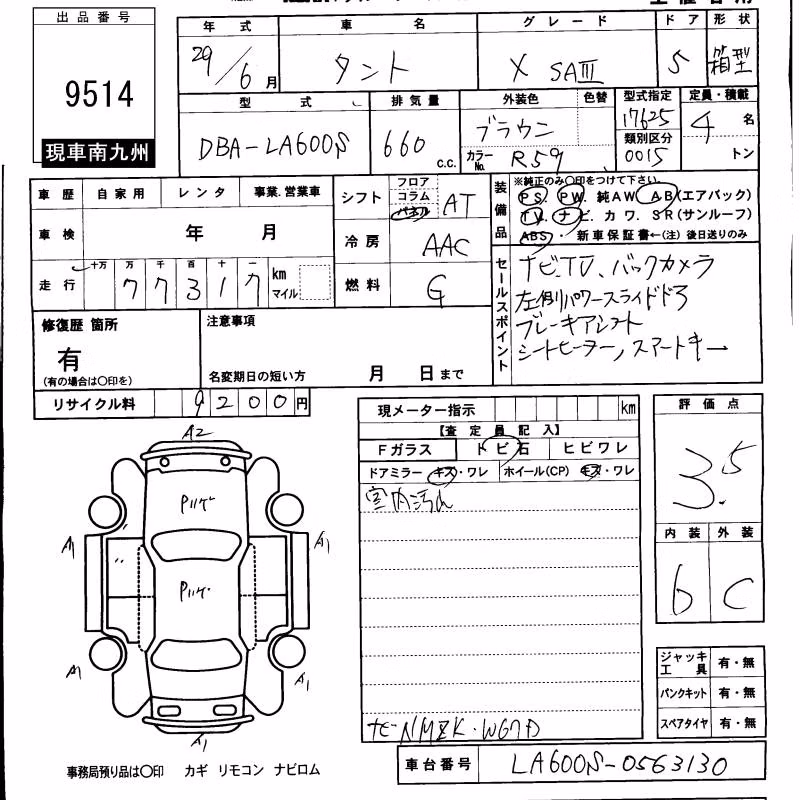 出品番号
9514
現車南九州
年式 車名 グレード ドア 形状
29/6月 タント X SAⅢ 5 箱型
型式 排気量 外装色 色替 型式指定 定員・積載
DBA-LA600S 660c.c. ブラウン 17625 4名
カラーNo. R59 類別区分 0015 トン
車歴 自家用 レンタ 事業.営業車
車検 年 月
走行 十万 万 千 百 十 一
77317 km マイル
シフト フロア コラム パネル AT
冷房 AAC
燃料 G
装備品
※純正のみ〇印をつけて下さい.
PS. PW. 純AW. AB(エアバック)
TV. ナビ. カワ. SR(サンルーフ)
ABS ・ 新車保証書←(注) 後日送りのみ
セールスポイント
ナビTV、バックカメラ
左側パワースライドドア
ブレーキアシスト
シートヒーター, スマートキー
修復歴 箇所
有
(有の場合は〇印を)
注意事項
名変期日の短い方 月 日まで
リサイクル料 9200円
現メーター指示 km
【査定員記入】
Fガラス トビ石 ヒビワレ
ドアミラー キズ・ワレ ホイール(CP) キズ・ワレ
室内汚れ
ナビNMZK-W67D
評価点
3.5
内装 外装
b C
ジャッキ工具 有・無
パンクキット 有・無
スペアタイヤ 有・無
A2
A1
A1
A1
A1
A1
事務局預り品は〇印 カギ リモコン ナビロム
車台番号 LA600S-0563130